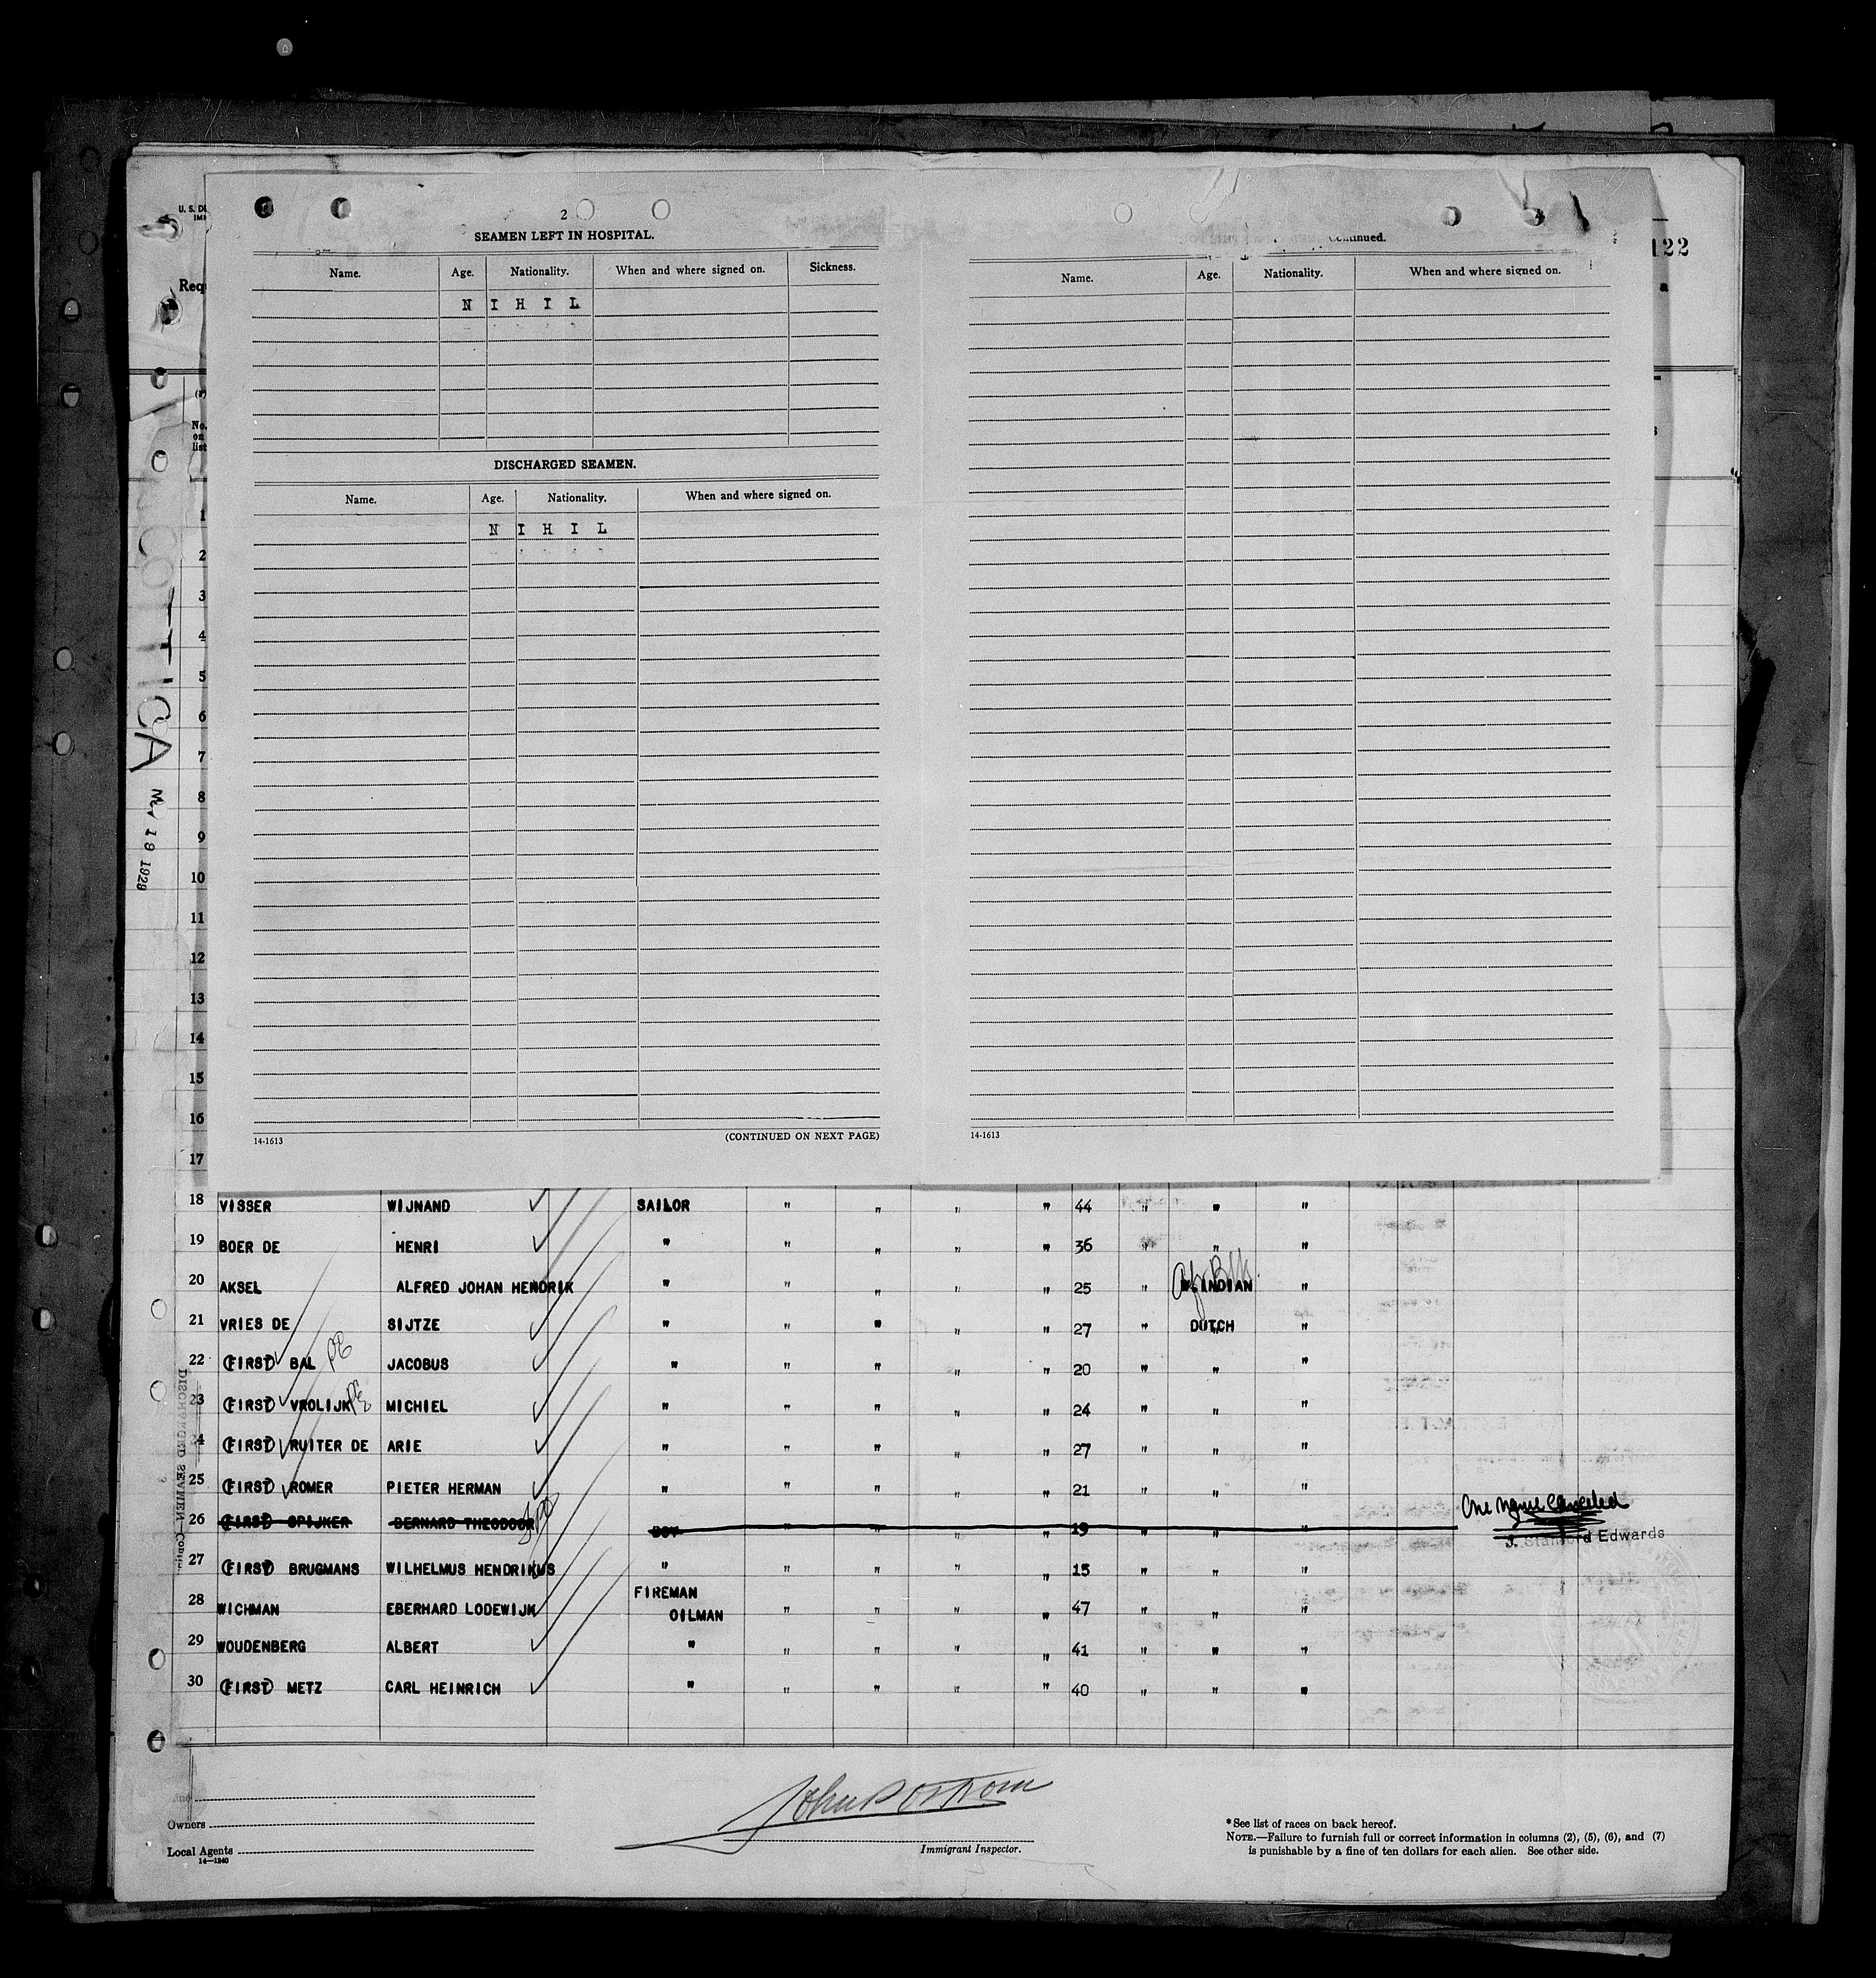 2
SEAMEN LEFT IN HOSPITAL.
Name. Age. Nationality. When and where signed on. Sickness.
N I H I L
DISCHARGED SEAMEN.
Name. Age. Nationality. When and where signed on.
N I H I L
14-1613 (CONTINUED ON NEXT PAGE)
Continued.
Name. Age. Nationality. When and where signed on.
14-1613
122
U. S. DE
IMM
Req
No.
on
list
COTTICA
19 1929
1
2
3
4
5
6
7
8
9
10
11
12
13
14
15
16
17
18 VISSER WIJNAND SAILOR " " " " 44 " " "
19 BOER DE HENRI " " " " " 36 " " "
20 AKSEL ALFRED JOHAN HENDRIK " " " " " 25 " INDIAN "
21 VRIES DE SIJTZE " " " " " 27 " DUTCH "
22 (FIRST) BAL JACOBUS " " " " " 20 " " "
23 (FIRST) VROLIJK MICHIEL " " " " " 24 " " "
24 (FIRST) RUITER DE ARIE " " " " " 27 " " "
25 (FIRST) ROMER PIETER HERMAN " " " " " 21 " " "
26 (FIRST) SPIJKER BERNARD THEODOOR BOY " " " " 19 " " "
One name canceled
S. Stanford Edwards
27 (FIRST) BRUGMANS WILHELMUS HENDRIKUS " " " " " 15 " " "
28 WICHMAN EBERHARD LODEWIJK FIREMAN OILMAN " " " " 47 " " "
29 WOUDENBERG ALBERT " " " " " 41 " " "
30 (FIRST) METZ CARL HEINRICH " " " " " 40 " " "
DISCHARGED SEAMEN
Owners
Local Agents
14—1240
Immigrant Inspector.
*See list of races on back hereof.
NOTE.—Failure to furnish full or correct information in columns (2), (5), (6), and (7)
is punishable by a fine of ten dollars for each alien. See other side.